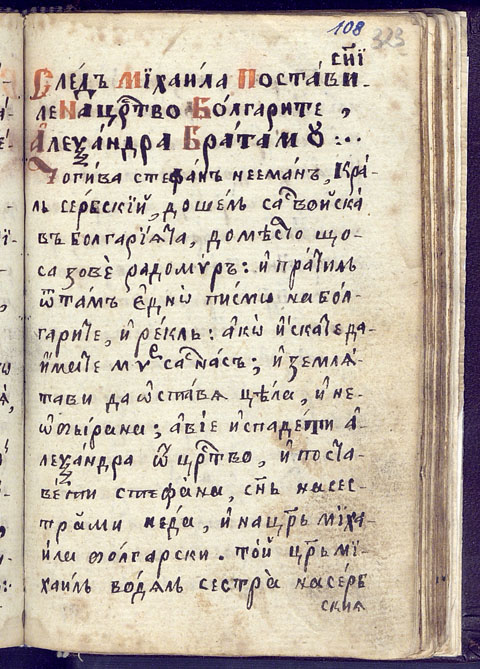 108
323
сн҃і
Слѣдъ Мїхаила Постави-
ле На црⷭ҇тво Болгарите,
Алеѯандра Братамꙋ:..
Тогива стефанъ нееманъ, Кра-
ль сербскїй, дошелъ саⷭ҇ войска
въ болгарїята, доместо що-
са зове радомѵръ: и пратилъ
ѿтамъ еднѡ писмѡ на бол-
гарите, и реклъ: акѡ искате да
имате мѵръ саⷭ҇ насъ; и земля-
тави да ѡставя цѣла, и не-
авїе испадети а-
леѯандра ѿ црⷭ҇тво, и поста-
вети стефана, сн҃ъ на сес-
трами неда, и на цр҃ъ мїха-
ила болгарски. той цр҃ъ мї-
хаилъ водялъ сестра на серб
ския